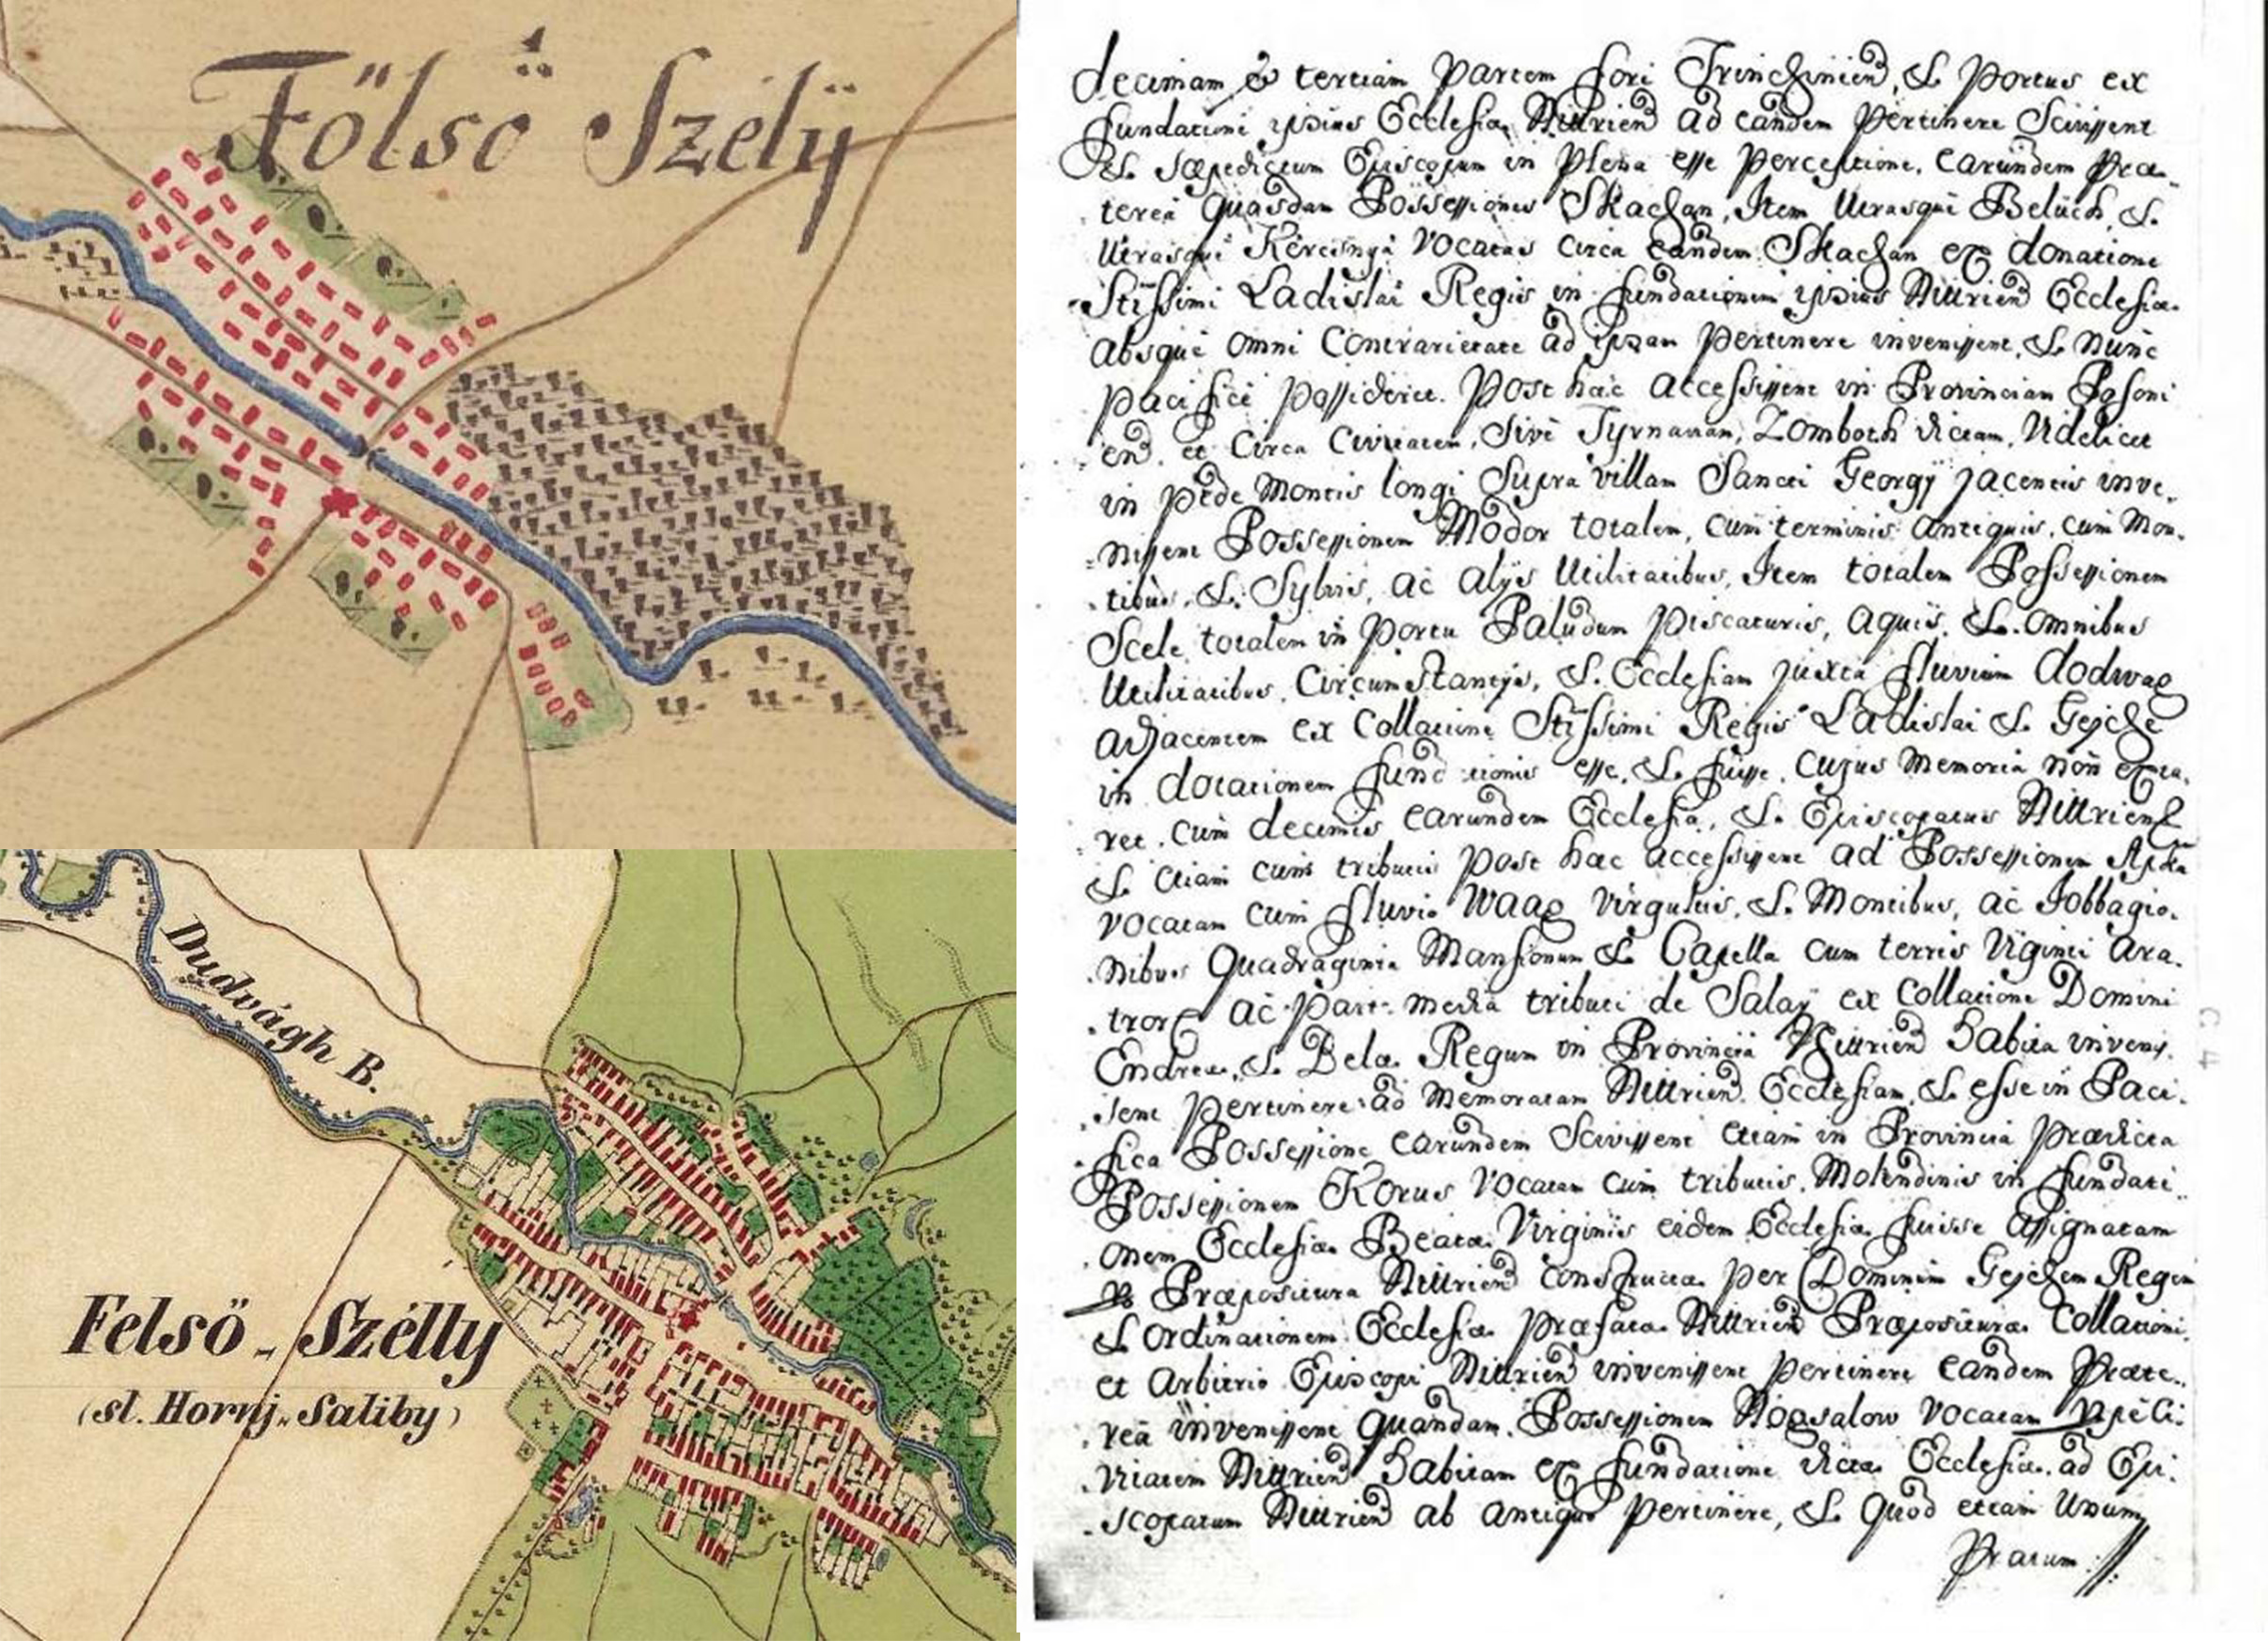 Fölsö Szélÿ
Dudvágh B.
Felsö-Szélly
(sl. Hornj-Saliby)
decimam & tertiam partem fori Trinchinien̄, & portus ex
fundationi ipsius Ecclesiæ Nittrien̄ ad eandem pertinere Scivissent
& Sæpedictum Episcopum in plena esse perceptione, earundem præ-
terea quasdam Possessiones Skachan, Item Utrasque Beluch, &
Utrasque vocatas circa eandem Skachan ex donatione
Stissimi Ladislai Regis in fundationem ipsius Nittrien̄ Ecclesiæ
absque omni Contrarietate ad ipsam pertinere invenissent, & nunc
pacifice possideret. Post hac accessissent in Provinciam Posoni
en̄. et circa Civitatem, Sive Tyrnavan, Zomboth dictam, Videlicet
in pede Montis longi Supra villam Sancti Georgÿ jacentis inve-
nissent Possessionem Modor totalem, cum terminis antiquis, cum Mon-
tibus, & Sylvis, ac alÿs Utilitatibus, Item totalem Possessionem
Scele totalem in portu Paludum piscaturis, aquis, & omnibus
Utilitatibus, Circumstantÿs, & Ecclesiam juxta fluvium Dodwag
adjacentem ex Collatione Stissimi Regis Ladislai & Gejche
in dotationem esse, & fuisse, cujus memoria non exta-
ret, cum decimis earundem Ecclesia, & Episcopatus Nittrien̄
& etiam cum tributis post hac accessissent ad Possessionem
vocatam cum fluvio Waag virgultis, & Montibus, ac Jobbagio-
nibus Quadraginta Mansionum & Capella cum terris Viginti ara-
tror ac part media tributi de Salaÿ ex Collatione Domini
Endreæ, & Belæ Regum in Provincia Nittrien̄ habita invenis-
sent pertinere ad memoratam Nittrien̄ Ecclesiam, & esse in Paci-
fica Possessione earundem Scivissent etiam in Provincia prædicta
Possessionem Korus vocatam cum tributis, Molendinis in fundati-
onem Ecclesiæ Beatæ Virginis eidem Ecclesiæ fuisse assignatam
Præpositura Nittrien̄ constructa per Dominum Gejchem Regem
& ordinationem Ecclesiæ præfatæ Nittrien̄ Præposituræ Collationi
et Arbitrio Episcopi Nittrien̄ invenissent pertinere eandem Præte-
rea invenissent quandam Possessionem vocatam
Nittrien̄ habitam ex fundatione dictæ Ecclesiæ ad Epi-
scopatum Nittrien̄ ab antiquo pertinere, & quod etiam Unum
Pratum